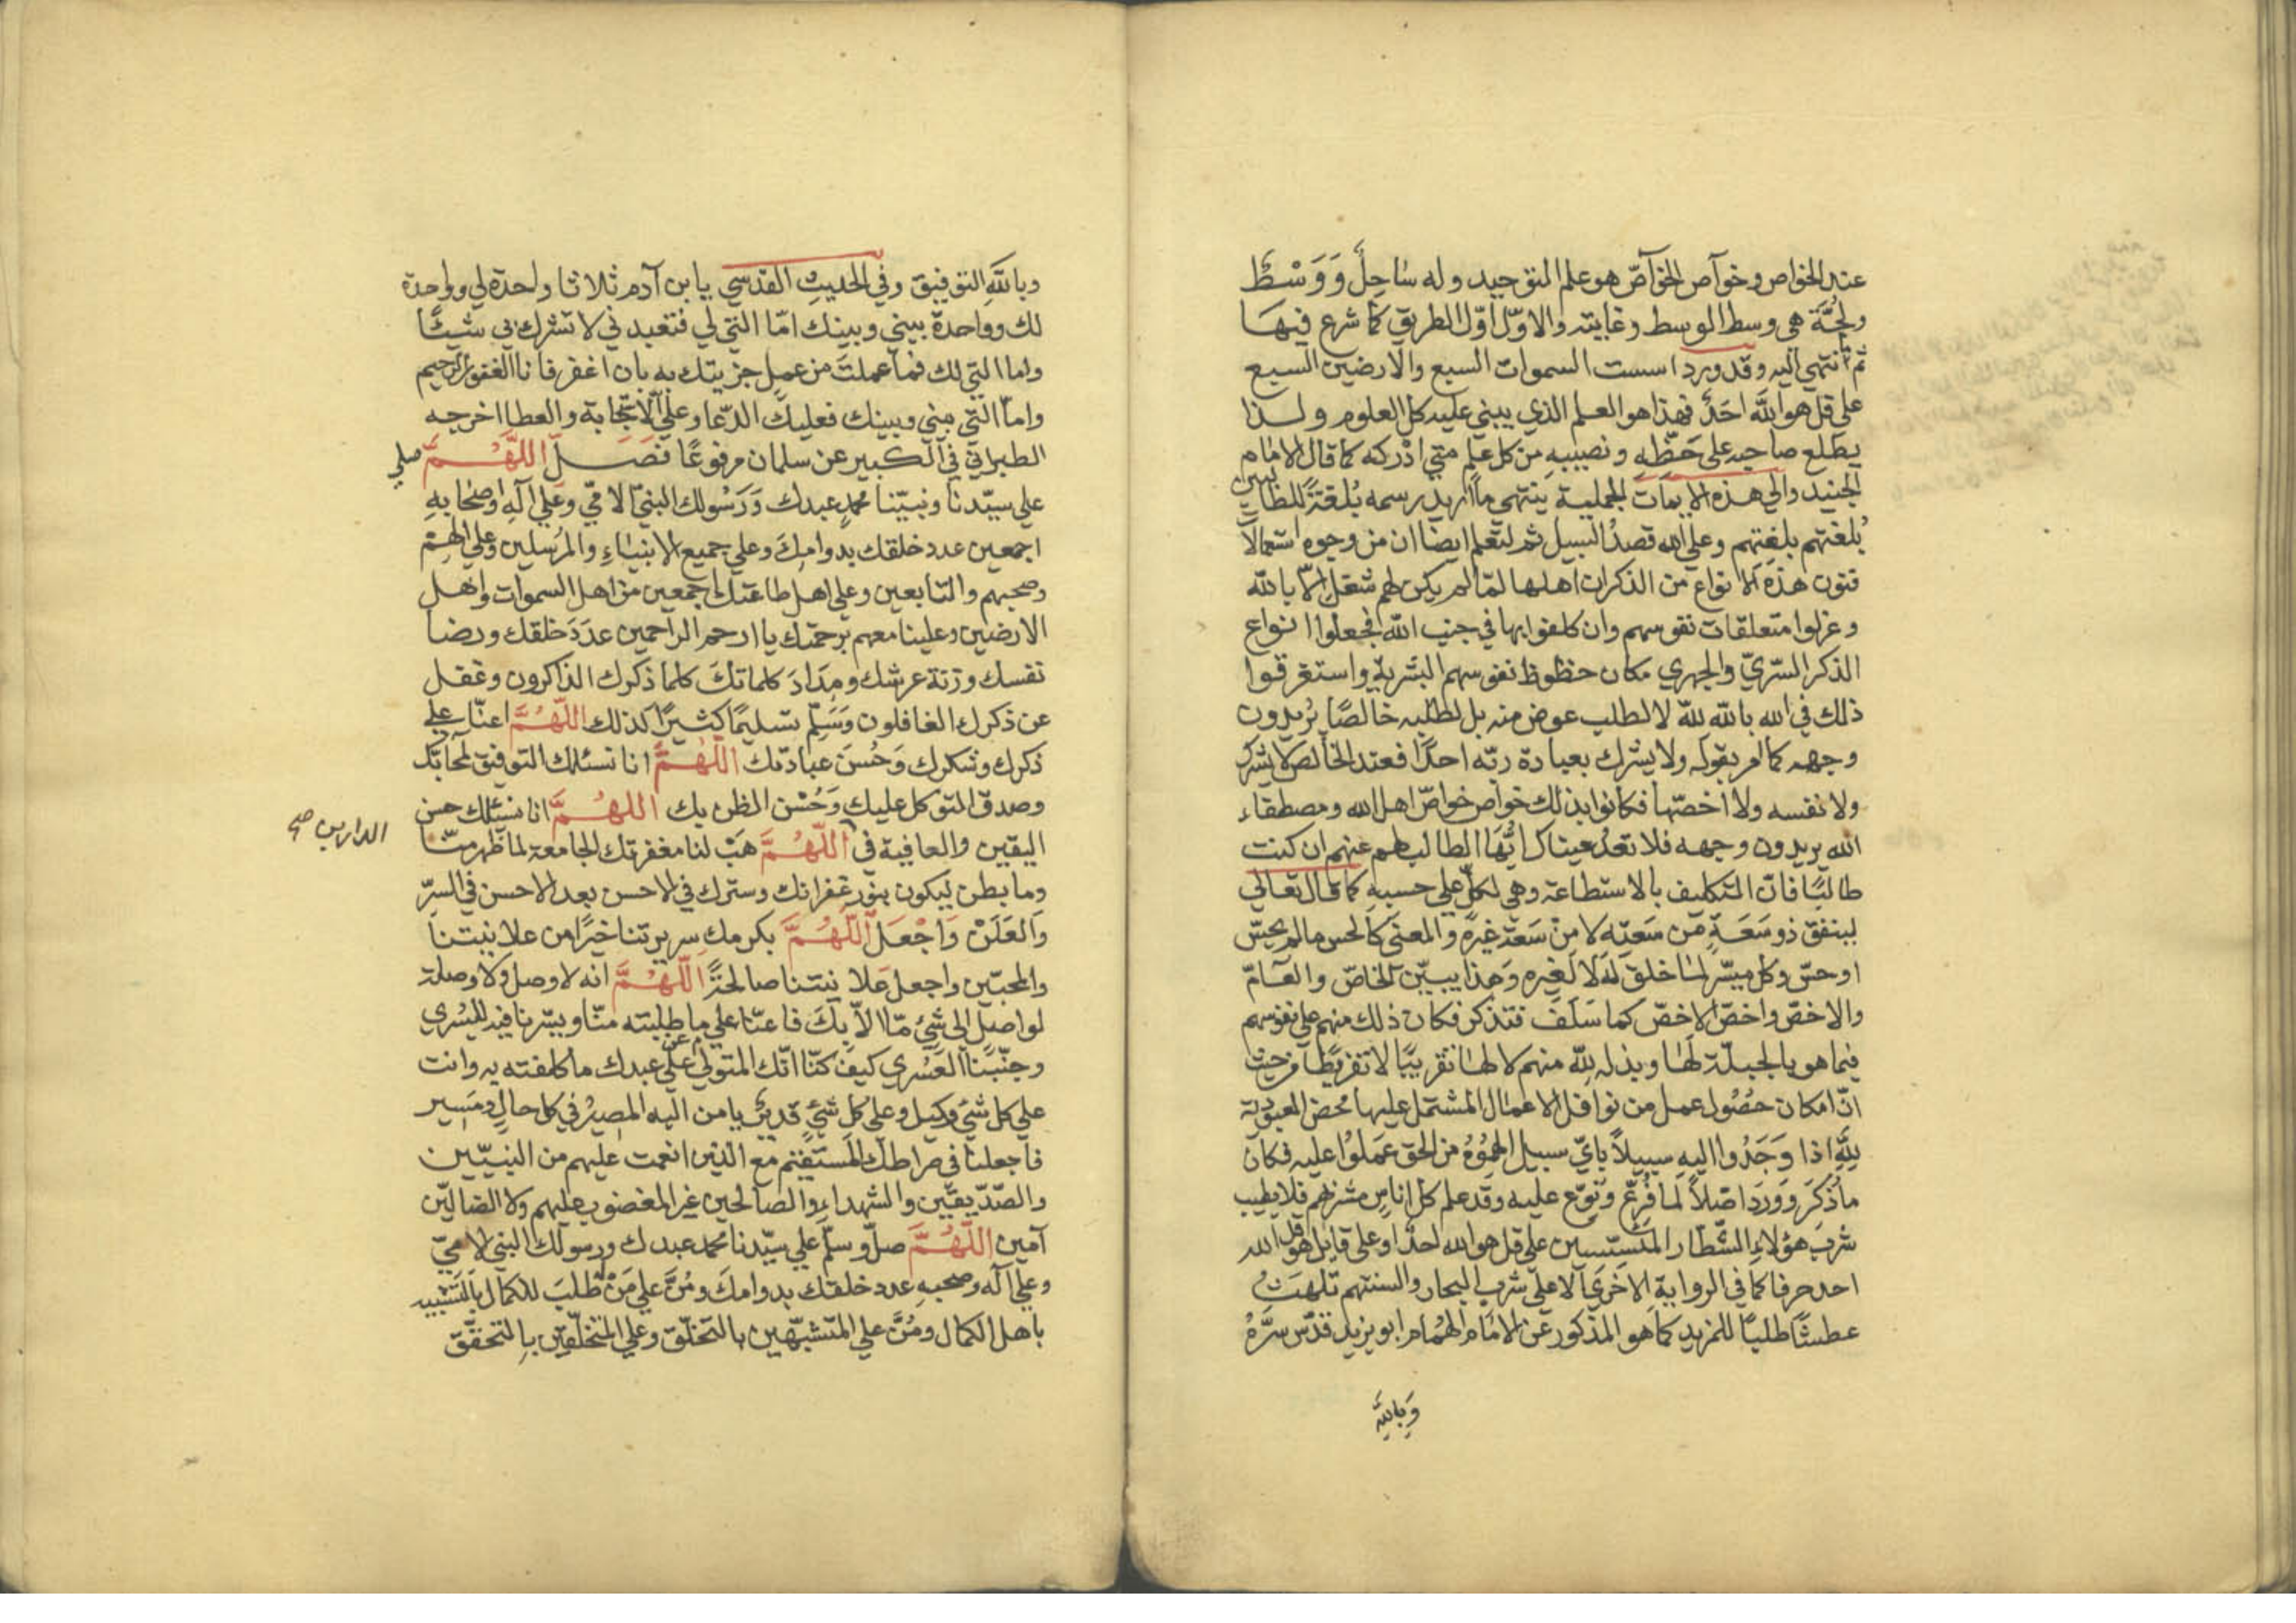 عند الخواص وخوآص الخوآصّ هو علم التوحيد وله ساحِلٌ وَوَسْطٌ
ولجُّة هي وسط الوسط وغايته والاوّل اوّل الطريق كما شرع فيها
ثم انتهي اليه وقد ورد اسست السموات السبع والارضين السبع
على قل هو اللّه احَدٌ فهذا هو العلم الذي يبني عليه كل العلوم ولذا
يطلع صاحبه على حَظِّهِ ونصيبهِ من كل علمٍ متي ادْركه كما قال الامام
الجنيد والي هذه الايمآت الجملية ينتهي ما اريد رسمه بُلغةً للطالبين
بُلغتهم بلغتهم وعلي الله قصدُ السبيل ثم لتعلم ايضا ان من وجوه استعمالا
فنون هذه الانواع من الذكر ان اهلها لمّا لم يكن لهم شغل الاّ باللّه
وعزلوا متعلقات نفوسهم وان كلفوا بها في جنب اللّه فجعلوا انواع
الذكر السّريّ والجهري مكان حظوظ نفوسهم البشرية واستغرقوا
ذلك في الله باللّه للّه لا لطلب عوض منه بل لطلبه خالصًا يُريدون
وجهه كما امر بقوله ولا يشرك بعبادة ربّه احدًا فعند الخالص لا يشرك
ولا نفسه ولا اخصّها فكانوا بذلك خواص خواصّ اهل الله ومصطفاء
اللّه يريدون وجهه فلا تعدُ عيناك ايُّهَا الطالب لهم عنهم ان كنت
طالبًا فانّ التكليف بالاستطاعة وهي لكلٍّ علي حسبهِ كما قال تعالي
لينفق ذو سَعَةٍ من سَعتِه لا مِن سَعة غيره والمعني كالحس مالم يحسّ
او حسّ وكل ميسّر لما خلق لهُ لا لغيره وَهذا يبيّن الخاصّ والعآمّ
والاخصّ واخصّ الاخصّ كما سَلَفَ فتذكر فكان ذلك منهم علي نفوسهم
فيما هو بالجبلّة لها وبذله للّه منهم لا لها تقريبًا لا تفريطًا من حيث
انّ امكان حُصُول عمل من نوافل الاعمال المشتمل عليها محض العبودية
للّهِ اذا وَجَدُوا اليهِ سبيلاً بايّ سبيل الهموُهُ من الحق عَملوُا عليه فكان
ما ذُكرَ وَورَدَ اصْلاً لما فُرّع ونوّع عليه وقد علم كل اناسٍ مشربهم فلا يطيب
شرب هؤلاءِ الشّطار علي قل هو الله احدٌ او علي قايل هو قل اللّه
احد حرفا كما في الرواية الاخري الا علي شرب البحار والسنتهم تلهثُ
عطشًا طلبًا للمزيد كما هو المذكور عَن الامَام الهُمَام ابو يزيد قدّس سرَّهُ
وَباللّهِ
وباللّهِ التوفيق وفي الحديثِ القدسي يا بن آدم ثلاثا واحدة لي وواحدة
لك وواحدة بيني وبينك امّا التي لي فتعبدني لا تشرك بي شيئًا
واما التي لك فما عملتَ من عملٍ جزيتك به بان اغفر فانا الغفور الرحيم
وامّا التي بيني وبينك فعليك الدّعا وعليّ الاجابة والعطا اخرجه
الطبراني في الكبير عن سلمان مرفوعًا فَصَلّ اللَّهُمَّ صلي
علي سيّدنا ونبيّنا محمدٍ عبدك وَرَسُولك النبيّ الامّي وعلي آلهِ واصحابهِ
اجمعين عدد خلقك بدوامِكَ وعلي جميع الانبيَاءِ والمُرسلين وعلي الهِم
وصحبهم والتابعين وعلي اهل طاعتك اجمعين من اهل السموات واهل
الارضين وعلينا معهم برحمتك يا ارحم الراحمين عدَدَ خلقك ورضا
نفسك وزنة عرشك ومِدَادَ كلماتكَ كلما ذكرك الذاكرون وغفل
عن ذكرك الغافلون وَسَلّم تسليمًا كثيرًا كذلك اللّهُمَّ اعنّا علي
ذكرك وشكرك وَحُسنَ عبادتك اللّهُمَّ انا نسئلك التوفيق لمحابّك
وصدق التوكل عليك وَحُسْن الظن بك اللهُمَّ انا نسئلك حسن
اليقين والعافية في اللّهُمَّ هَبْ لنا مغفرتك الجامعة لما ظهر منّا
الدارين صح
وما بطن ليكون بنور غفرانك وسترك في الاحسن بعد الاحسن في السرّ
وَالعَلَنْ وَاجْعَل اللّهُمَّ بكرمك سريرتنا خيرًا من علانيتنا
والمحبّين واجعل عَلانيتنا صالحةً اللّهُمَّ انه لا وصل ولا وصلة
لواصلٍ الي شيءٍ ممّا الاّ بكَ فاعنّا علي ما طلبته منّا ويسّرنا فيه لليُسري
وجنّبنا العُسْري كيفَ كنّا انّك المتولي عن علي عبدك ما كلفته به وانت
علي كل شئٍ وكيل وعلي كل شئٍ قديرٌ يا من اليه المصيرُ في كل حالٍ ومَسير
فاجعلنا في صراطك المستقيم مع الذين انعمت عليهم من النبيّين
والصّدّيقيّن والشهداءِ والصالحين غير المغضوب عليهم ولا الضالّين
آمين اللّهُمَّ صلّ وسلّم علي سيّدنا محمد عبدك ورسولك النبي الامّيّ
وعلي آله وصحبهِ عدد خلقك بدوامكَ ومُنَّ علي مَنْ طلبَ للكمال بالتشبيه
باهل الكمال ومُنَّ علي المتشبّهين بالتخلّق وعلي المتخلّقين بالتحقّق